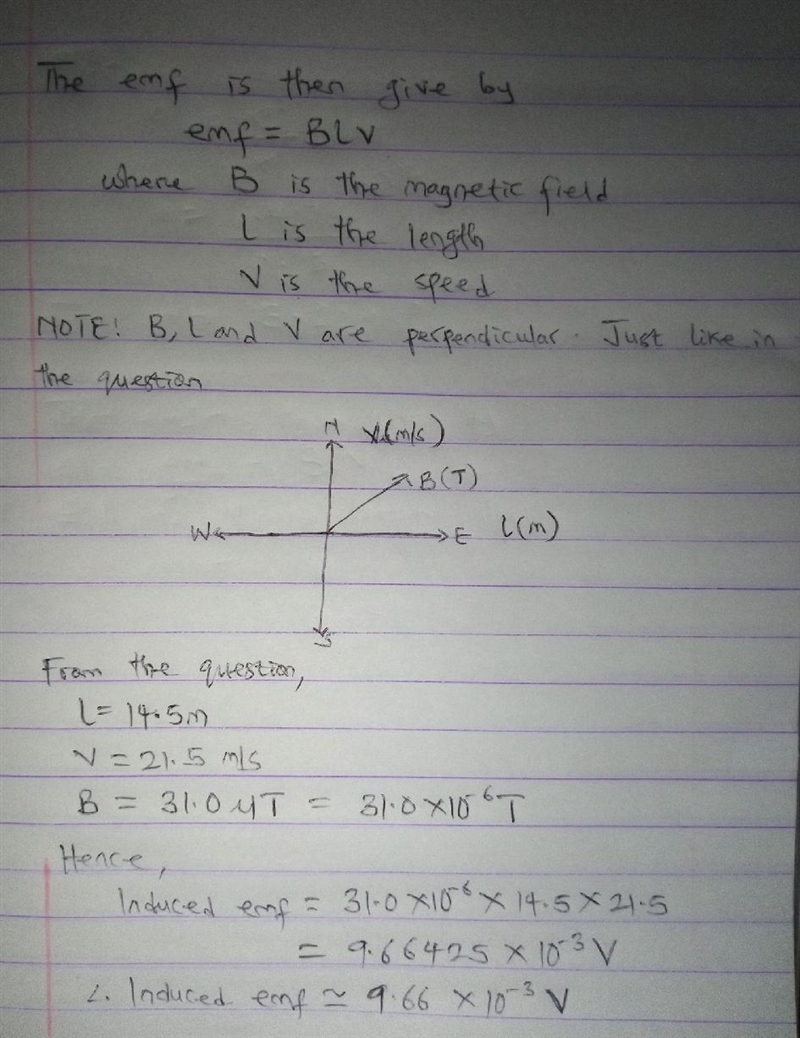 The emf is then give by
emf = BLV
where B is the magnetic field
L is the length
V is the speed
NOTE! B, L and V are perpendicular. Just like in
the question
N V(m/s)
B(T)
W E L(m)
S
From the question,
L = 14.5m
V = 21.5 m/s
B = 31.0 μT = 31.0 × 10⁻⁶ T
Hence,
Induced emf = 31.0 × 10⁻⁶ × 14.5 × 21.5
= 9.66425 × 10⁻³ V
∴ Induced emf ≃ 9.66 × 10⁻³ V